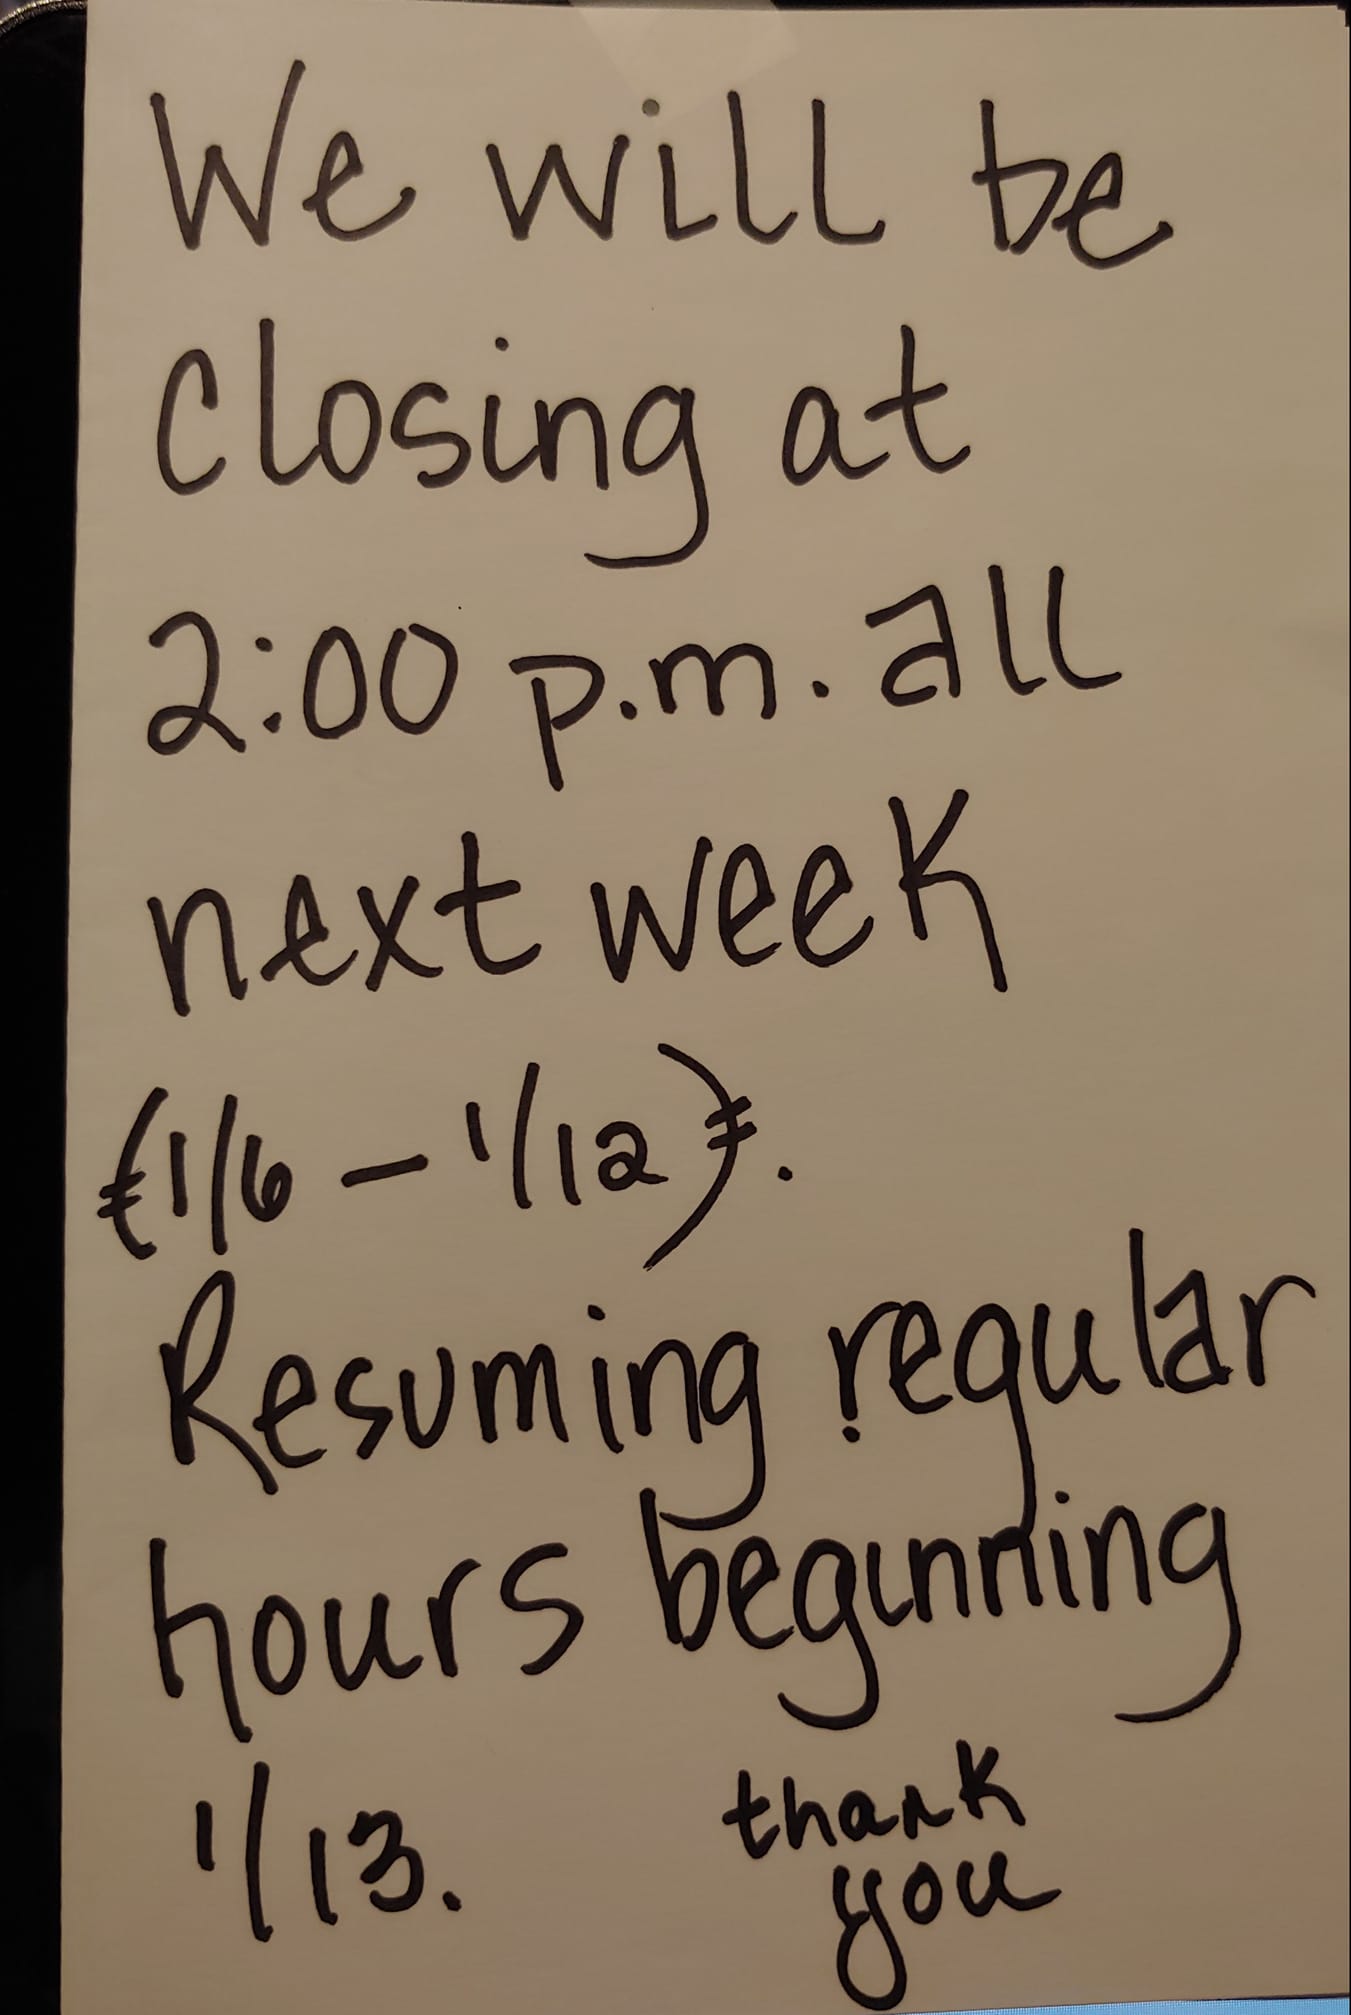 We will be
closing at
2:00 p.m. all
next week
(1/6 - 1/12).
Resuming regular
hours beginning
1/13. thank
you